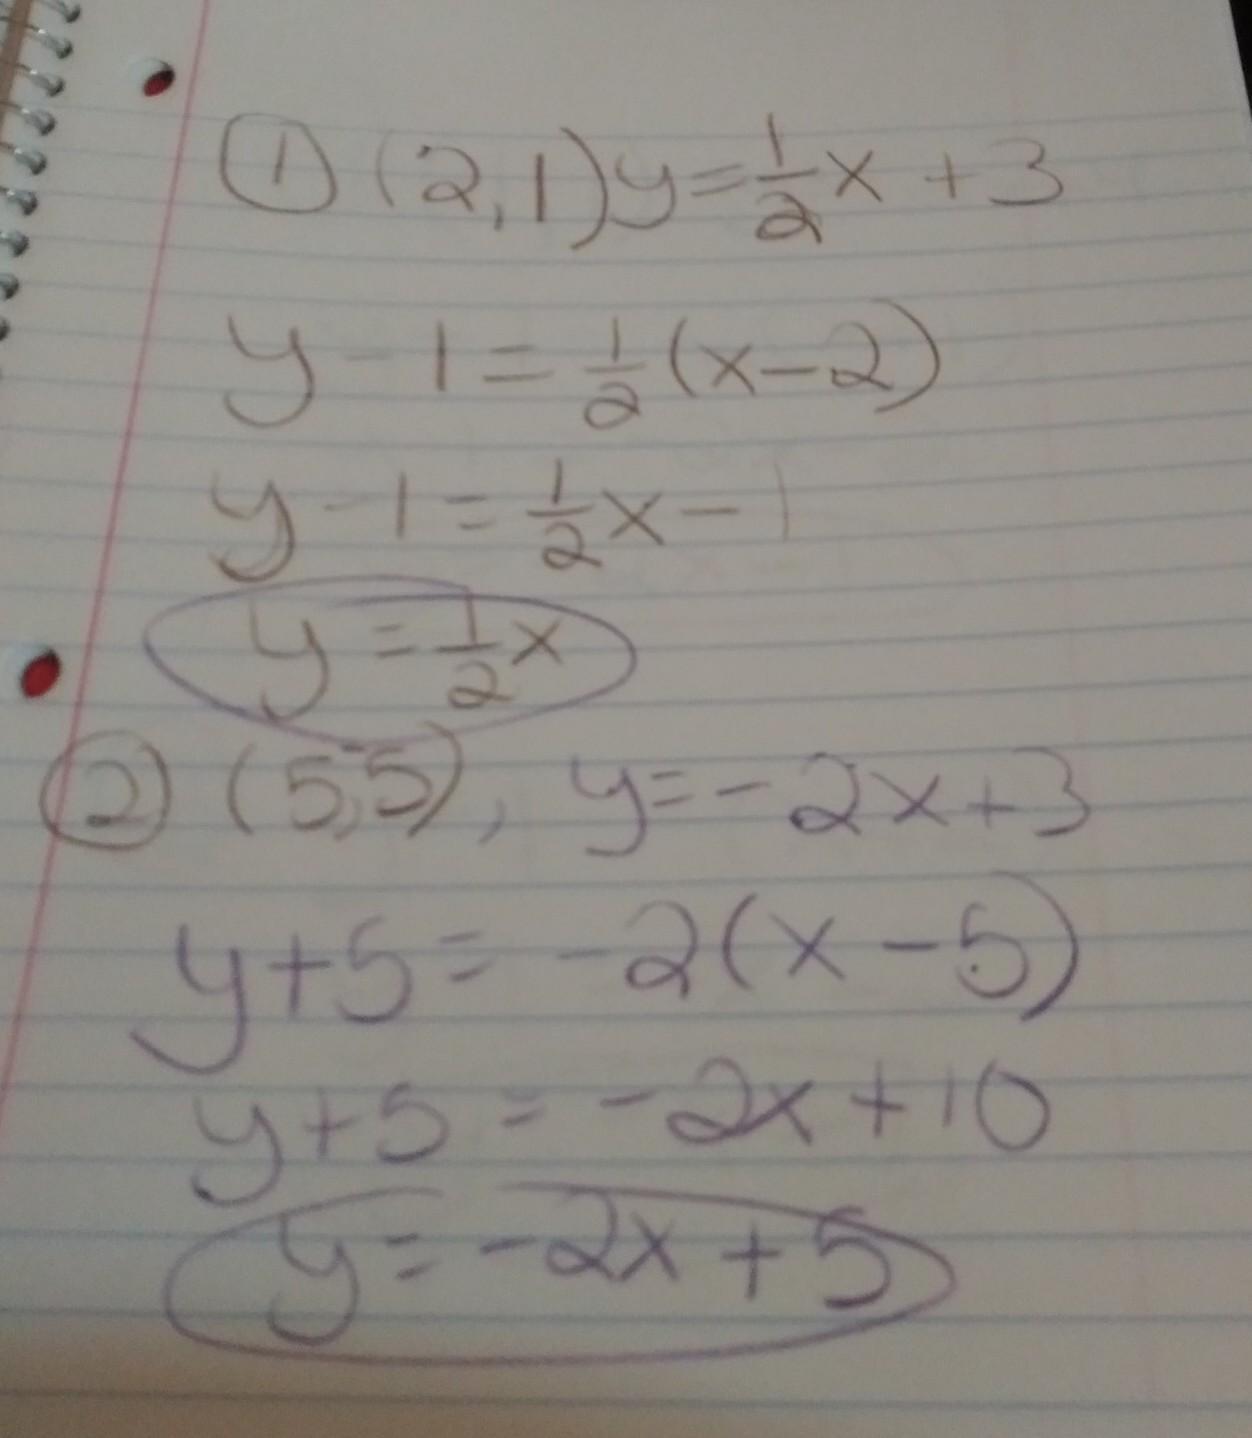 ① (2,1) y = 1/2 x + 3
y - 1 = 1/2 (x - 2)
y - 1 = 1/2 x - 1
y = 1/2 x
② (5,-5), y = -2x + 3
y + 5 = -2(x - 5)
y + 5 = -2x + 10
y = -2x + 5